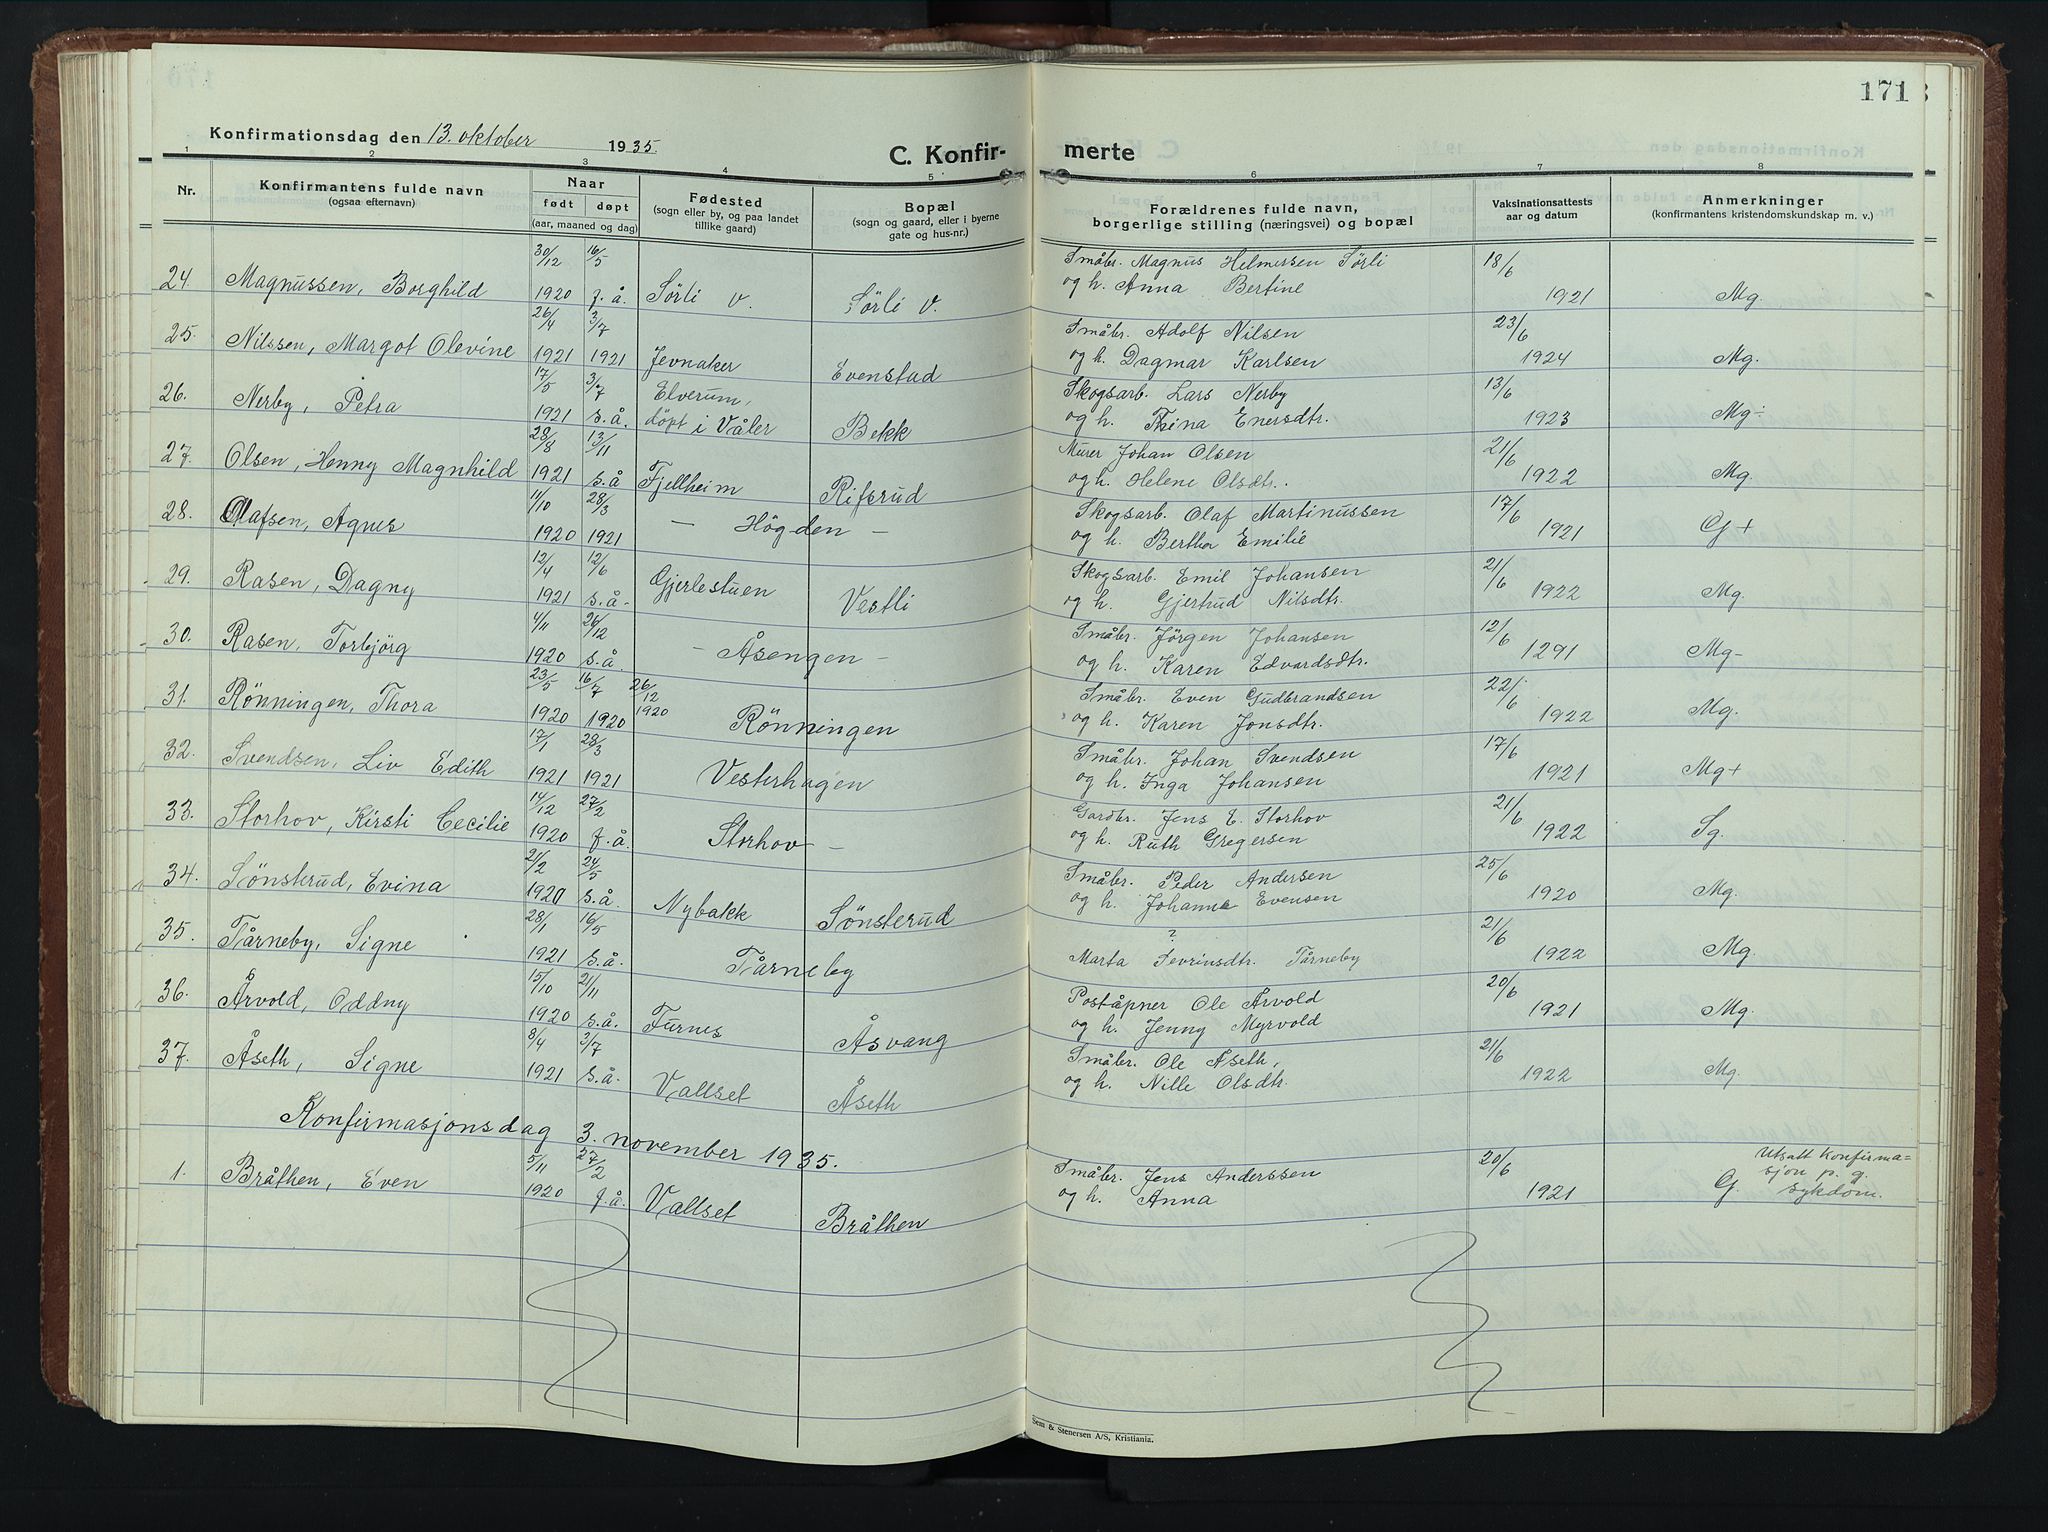 171
Konfirmationsdag den 13. oktober 1935.
C. Konfirmerte
1 2 3 4 5 6 7 8
Nr. | Konfirmantens fulde navn (ogsaa efternavn) | Naar født døpt (aar, maaned og dag) | Fødested (sogn eller by, og paa landet tillike gaard) | Bopæl (sogn og gaard, eller i byerne gate og hus-nr.) | Forældrenes fulde navn, borgerlige stilling (næringsvei) og bopæl | Vaksinationsattests aar og datum | Anmerkninger (konfirmantens kristendomskundskap m. v.)
24. Magnussen, Borghild 30/12 1920 16/5 f.å. Sørli v. Sørli v. Småbr. Magnus Helmersen Sørli og h. Anna Bertine 18/6 1921 Mg.
25. Nilssen, Margot Olevine 26/4 1921 3/7 1921 Jevnaker Evenstad Småbr. Adolf Nilsen og h. Dagmar Karlsen 23/6 1924 Mg.
26. Nerby, Petra 17/5 1921 3/7 s.å. Elverum, døpt i Våler Bekk Skogsarb. Lars Nerby og h. Trina Enersdtr. 13/6 1923 Mg÷
27. Olsen, Henny Magnhild 28/8 1921 13/11 s.å Fjellheim Rifsrud Murer Johan Olsen og h. Helene Olsdtr. 21/6 1922 Mg.
28. Olafsen, Agnes 11/10 1920 28/3 1921 – Högden – Skogsarb. Olaf Martinussen og h. Berthe Emilie 17/6 1921 G+
29. Rasen, Dagny 12/4 1921 12/6 s.å. Gjerlestuen Vestli Skogsarb. Emil Johansen og h. Gjertrud Nilsdtr. 21/6 1922 Mg.
30. Rasen, Torbjörg 4/11 1920 26/12 s.å. – Åsengen – Småbr. Jörgen Johansen og h. Karen Edvardsdtr. 12/6 1291 Mg-
31. Rönningen, Thora 23/5 1920 16/7 1920 26/12 1920 Rönningen Småbr. Even Gudbrandsen og h. Karen Jonsdtr. 22/6 1922 Mg.
32. Svendsen, Liv Edith 17/1 1921 28/3 1921 Vesterhagen Småbr. Johan Svendsen og h. Inga Johansen 17/6 1921 Mg+
33. Storhov, Kirsti Cecilie 14/12 1920 27/2 f.å. Storhov – Gardbr. Jens E. Storhov og h. Ruth Gregersen 21/6 1922 Sg.
34. Sönsterud, Evina 21/2 1920 24/5 s.å. Nybakk Sönsterud Småbr. Peder Andersen og h. Johanne Evensen 25/6 1920 Mg.
35. Tårneby, Signe 28/1 1921 16/5 s.å. Tårneby ? Marta Sevrinsdtr. Tårneby 21/6 1922 Mg.
36. Årvold, Oddny 15/10 1920 21/11 s.å. Furnes Åsvang Poståpner Ole Årvold og h. Jenny Myrvold 20/6 1921 Mg.
37. Åseth, Signe 8/4 1921 3/7 s.å. Vallset Åseth Småbr. Ole Åseth, og h. Nille Olsdtr. 21/6 1922 Mg.
Konfirmasjonsdag 3. november 1935.
1. Bråthen, Even 5/11 1920 27/2 f.å. Vallset Bråthen Småbr. Jens Anderssen og h. Anna 20/6 1921 G. Utsatt konfirmasjon p. g. sykdom.
Sem & Stenersen A/S, Kristiania.